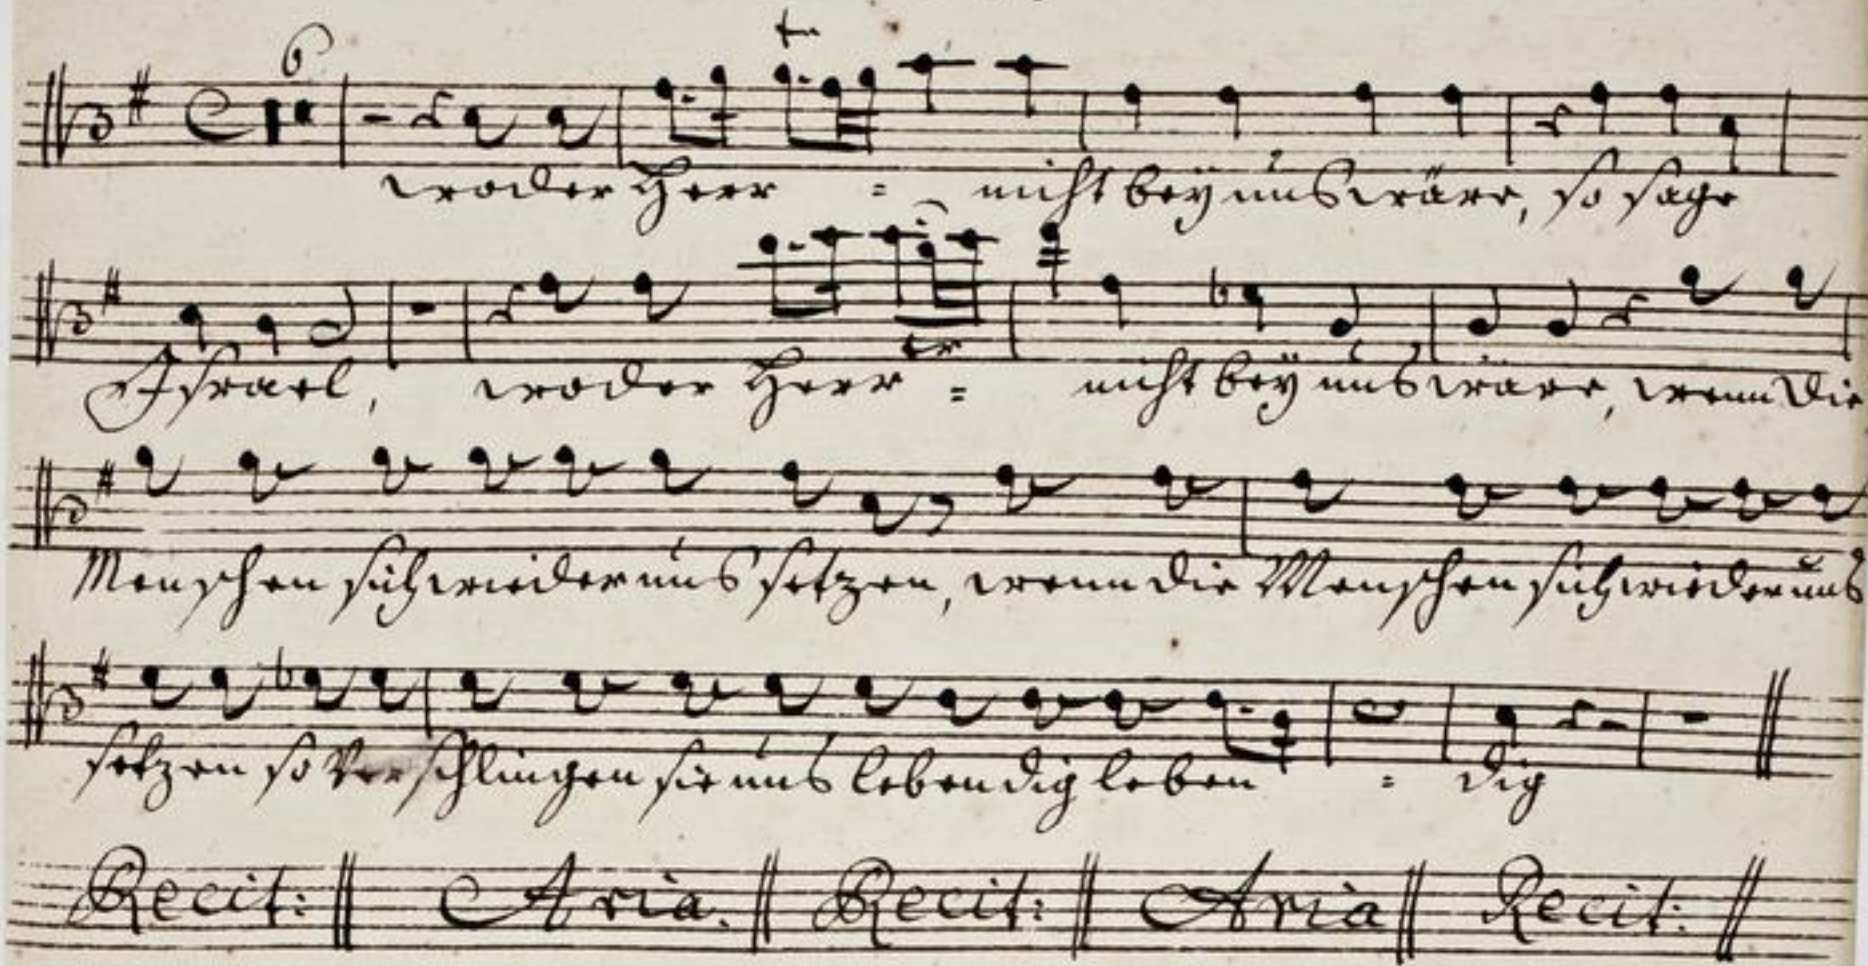 6
tr
wo der Herr = nicht beÿ uns wäre, so sage
Israel, wo der Herr = nicht beÿ uns wäre, wenn die
tr
Menschen sich wieder uns setzen, wenn die Menschen sich wieder uns
setzen so verschlingen sie uns lebendig leben = dig
Recit: Aria. Recit: Aria Recit: